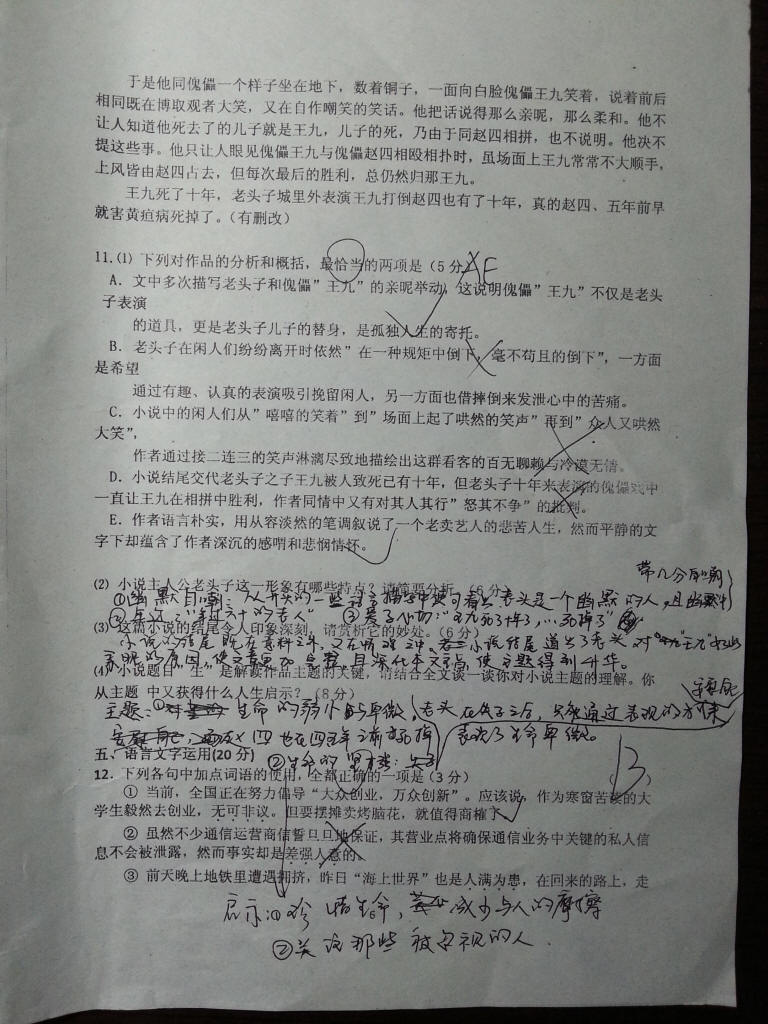 于是他同傀儡一个样子坐在地下，数着铜子，一面向白脸傀儡王九笑着，说着前后
相同既在博取观者大笑，又在自作嘲笑的笑话。他把话说得那么亲昵，那么柔和。他不
让人知道他死去了的儿子就是王九，儿子的死，乃由于同赵四相拼，也不说明。他决不
提这些事。他只让人眼见傀儡王九与傀儡赵四相殴相扑时，虽场面上王九常常不大顺手，
上风皆由赵四占去，但每次最后的胜利，总仍然归那王九。
王九死了十年，老头子城里外表演王九打倒赵四也有了十年，真的赵四、五年前早
就害黄疸病死掉了。（有删改）
11.(1) 下列对作品的分析和概括，最恰当的两项是（5分） AE
A．文中多次描写老头子和傀儡"王九"的亲昵举动，这说明傀儡"王九"不仅是老头
子表演
的道具，更是老头子儿子的替身，是孤独人生的寄托。
B．老头子在闲人们纷纷离开时依然"在一种规矩中倒下，毫不苟且的倒下"，一方面
是希望
通过有趣、认真的表演吸引挽留闲人，另一方面也借摔倒来发泄心中的苦痛。
C．小说中的闲人们从"嘻嘻的笑着"到"场面上起了哄然的笑声"再到"众人又哄然
大笑"，
作者通过接二连三的笑声淋漓尽致地描绘出这群看客的百无聊赖与冷漠无情。
D．小说结尾交代老头子之子王九被人致死已有十年，但老头子十年来表演的傀儡戏中
一直让王九在相拼中胜利，作者同情中又有对其人其行"怒其不争"的批判。
E．作者语言朴实，用从容淡然的笔调叙说了一个老卖艺人的悲苦人生，然而平静的文
字下却蕴含了作者深沉的感喟和悲悯情怀。
带几分自嘲
(2) 小说主人公老头子这一形象有哪些特点？请简要分析。（6分）
①幽默自嘲：从开头的一些对言描写中便可看出老头是一个幽默的人，且幽默中
②年迈："年过六十的老人" ③爱子心切："王九死了掉了，…死掉了"
(3) 这篇小说的结尾令人印象深刻，请赏析它的妙处。（6分）
小说的结尾既在意料之外，又在情理之中。小说结尾道出了老头对"王九"
亲昵的原因，使文章更加完整，且深化本文主旨，使主题得到升华。
(4) 小说题目"生"是解读作品主题的关键，请结合全文谈一谈你对小说主题的理解。你
从主题 中又获得什么人生启示？（8分）
主题：① 生命的弱小与卑微，老头在失子之后，只能通过表现的方式来
四也在四五年之前死掉 表现了生命卑微。
五、语言文字运用(20分) ②生命的坚韧：失子
12．下列各句中加点词语的使用，全都正确的一项是（3分） （B）
① 当前，全国正在努力倡导"大众创业，万众创新"。应该说，作为寒窗苦读的大
学生毅然去创业，无可非议。但要摆摊卖烤脑花，就值得商榷了。
② 虽然不少通信运营商信誓旦旦地保证，其营业点将确保通信业务中关键的私人信
息不会被泄露，然而事实却是差强人意的。
③ 前天晚上地铁里遭遇拥挤，昨日"海上世界"也是人满为患，在回来的路上，走
启示：①珍惜生命，减少与人的摩擦
②关注那些被忽视的人．